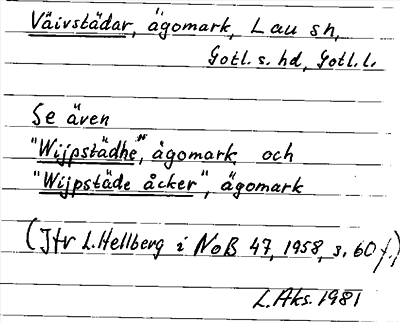 Väivstädar, ägomark, Lau sn,
Gotl. s. hd, Gotl. l.
Se även
"Wijpstädhe", ägomark och
"Wijpstäde åcker", ägomark
(Jfr L. Hellberg i NoB 47, 1958, s. 60 f.)
L. Aks. 1981